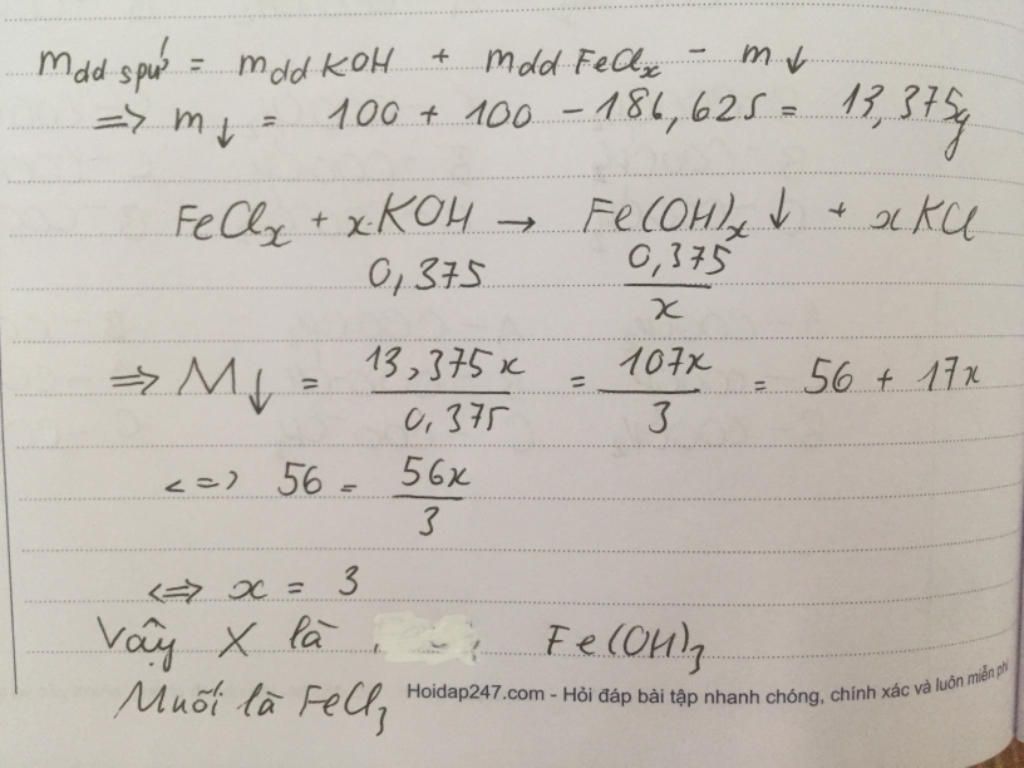 m dd spứ = m dd KOH + m dd FeClₓ - m↓
=> m↓ = 100 + 100 - 186,625 = 13,375g
FeClₓ + x.KOH → Fe(OH)ₓ↓ + xKCl
0,375 0,375/x
=> M↓ = 13,375x/0,375 = 107x/3 = 56 + 17x
<=> 56 = 56x/3
<=> x = 3
Vậy X là Fe(OH)₃
Muối là FeCl₃
Hoidap247.com - Hỏi đáp bài tập nhanh chóng, chính xác và luôn miễn phí